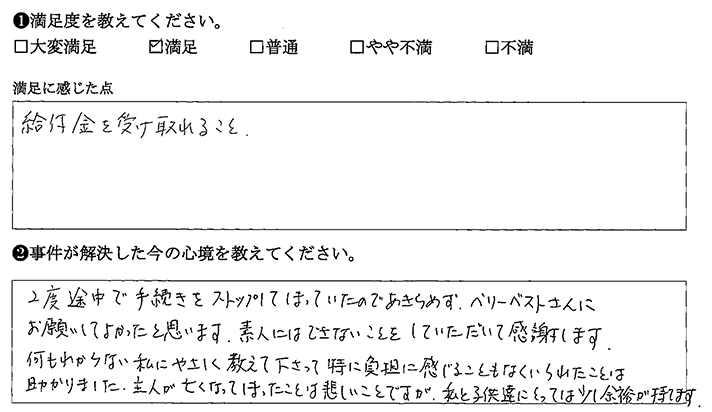 ❶満足度を教えてください。
□大変満足 ☑満足 □普通 □やや不満 □不満
満足に感じた点
給付金を受け取れること.
❷事件が解決した今の心境を教えてください。
2度途中で手続きをストップしてしまっていたのであきらめず、ベリーベストさんに
お願いしてよかったと思います。素人にはできないことをしていただいて感謝します。
何もわからない私にやさしく教えて下さって特に負担に感じることもなくいられたことは
助かりました。主人が亡くなってしまったことは悲しいことですが、私と子供達にとっては少し余裕が持てます.